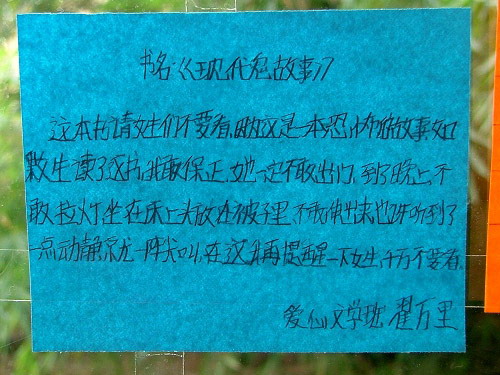 书名:《现代鬼故事》
这本书请女生们不要看,因为这是一本恐怖鬼故事如
果女生读了这书,我敢保正,她一定不敢出门,到了晚上,不
敢拉灯坐在床上头放在被子里不敢伸出来也许听到了
一点动静就一阵尖叫,在这我再提醒一下女生,千万不要看。
爱心文学班 翟万里